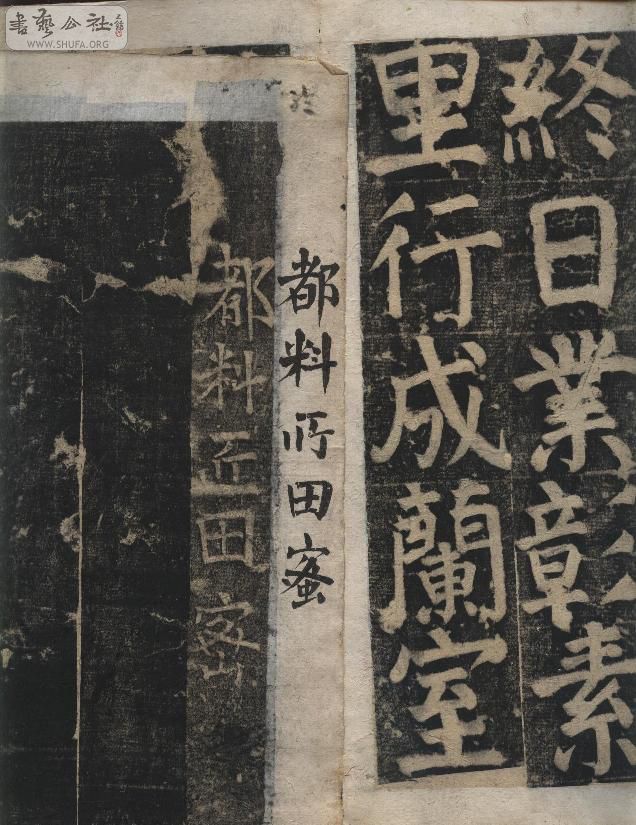 終日業彰素
里行成蘭室
都料所田蜜
都料匠田密
書藝公社
WWW.SHUFA.ORG